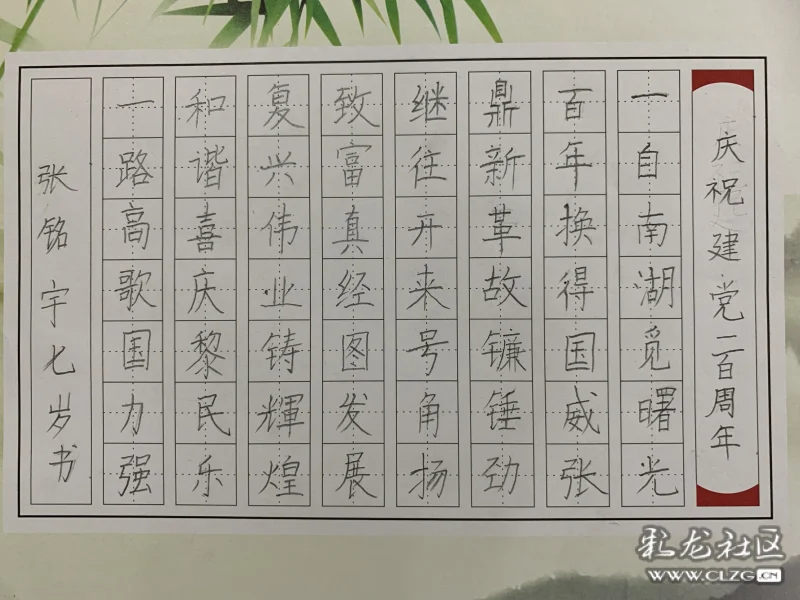 庆祝建党一百周年
一自南湖觅曙光
百年换得国威张
鼎新革故镰锤劲
继往开来号角扬
致富真经图发展
复兴伟业铸輝煌
和谐喜庆黎民乐
一路高歌国力强
张铭宇七岁书
彩龙社区
WWW.CLZG.CN